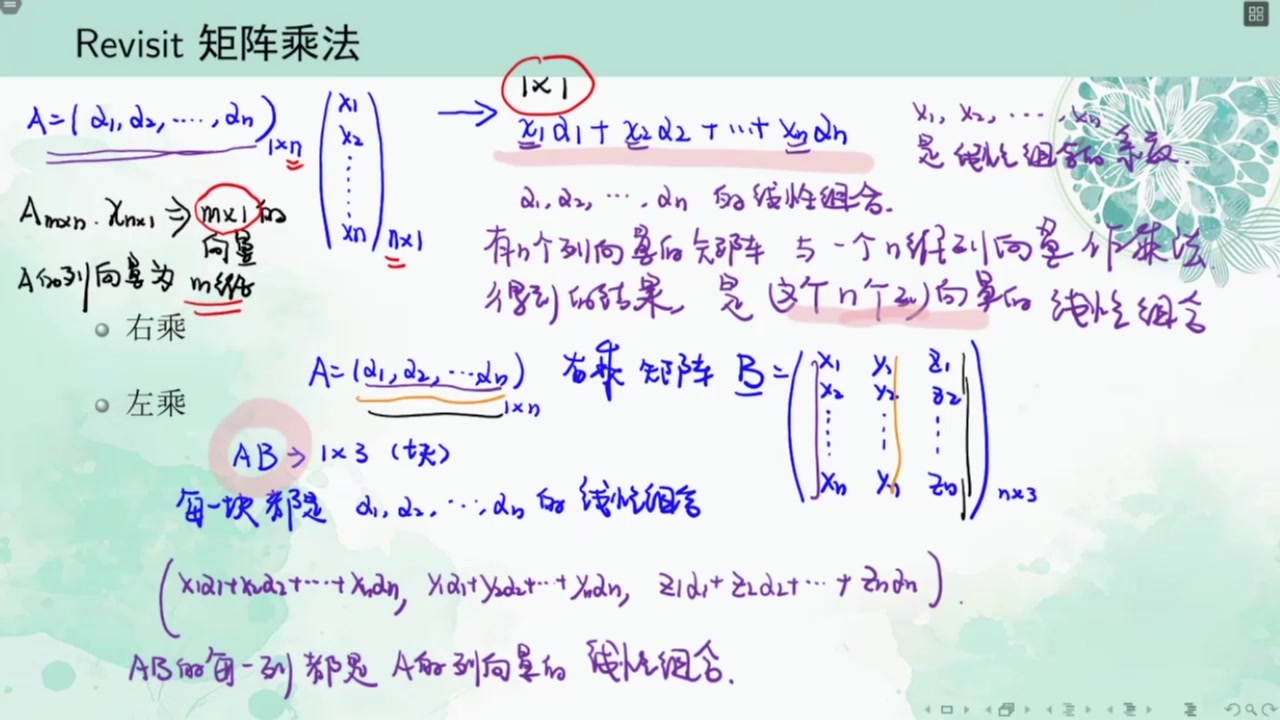 Revisit 矩阵乘法
A=(α1, α2, ⋯, αn)1×n (x1 x2 ⋮ xn)n×1 → x1α1+x2α2+⋯+xnαn
1×1
x1, x2, ⋯, xn
是线性组合的系数.
α1, α2, ⋯, αn 的线性组合.
Am×n · xn×1 ⇒ m×1的
向量
A的列向量为 m维
有n个列向量的矩阵 与一个n维列向量作乘法
得到的结果, 是(这个n个列)向量的 线性组合
右乘
左乘
A=(α1, α2, ⋯, αn)1×n 右乘 矩阵 B=(x1 y1 z1
x2 y2 z2
⋮ ⋮ ⋮
xn yn zn)n×3
AB → 1×3 (块)
每一块都是 α1, α2, ⋯, αn 的 线性组合
(x1α1+x2α2+⋯+xnαn, y1α1+y2α2+⋯+ynαn, z1α1+z2α2+⋯+znαn).
AB的每一列都是 A的列向量的 线性组合.